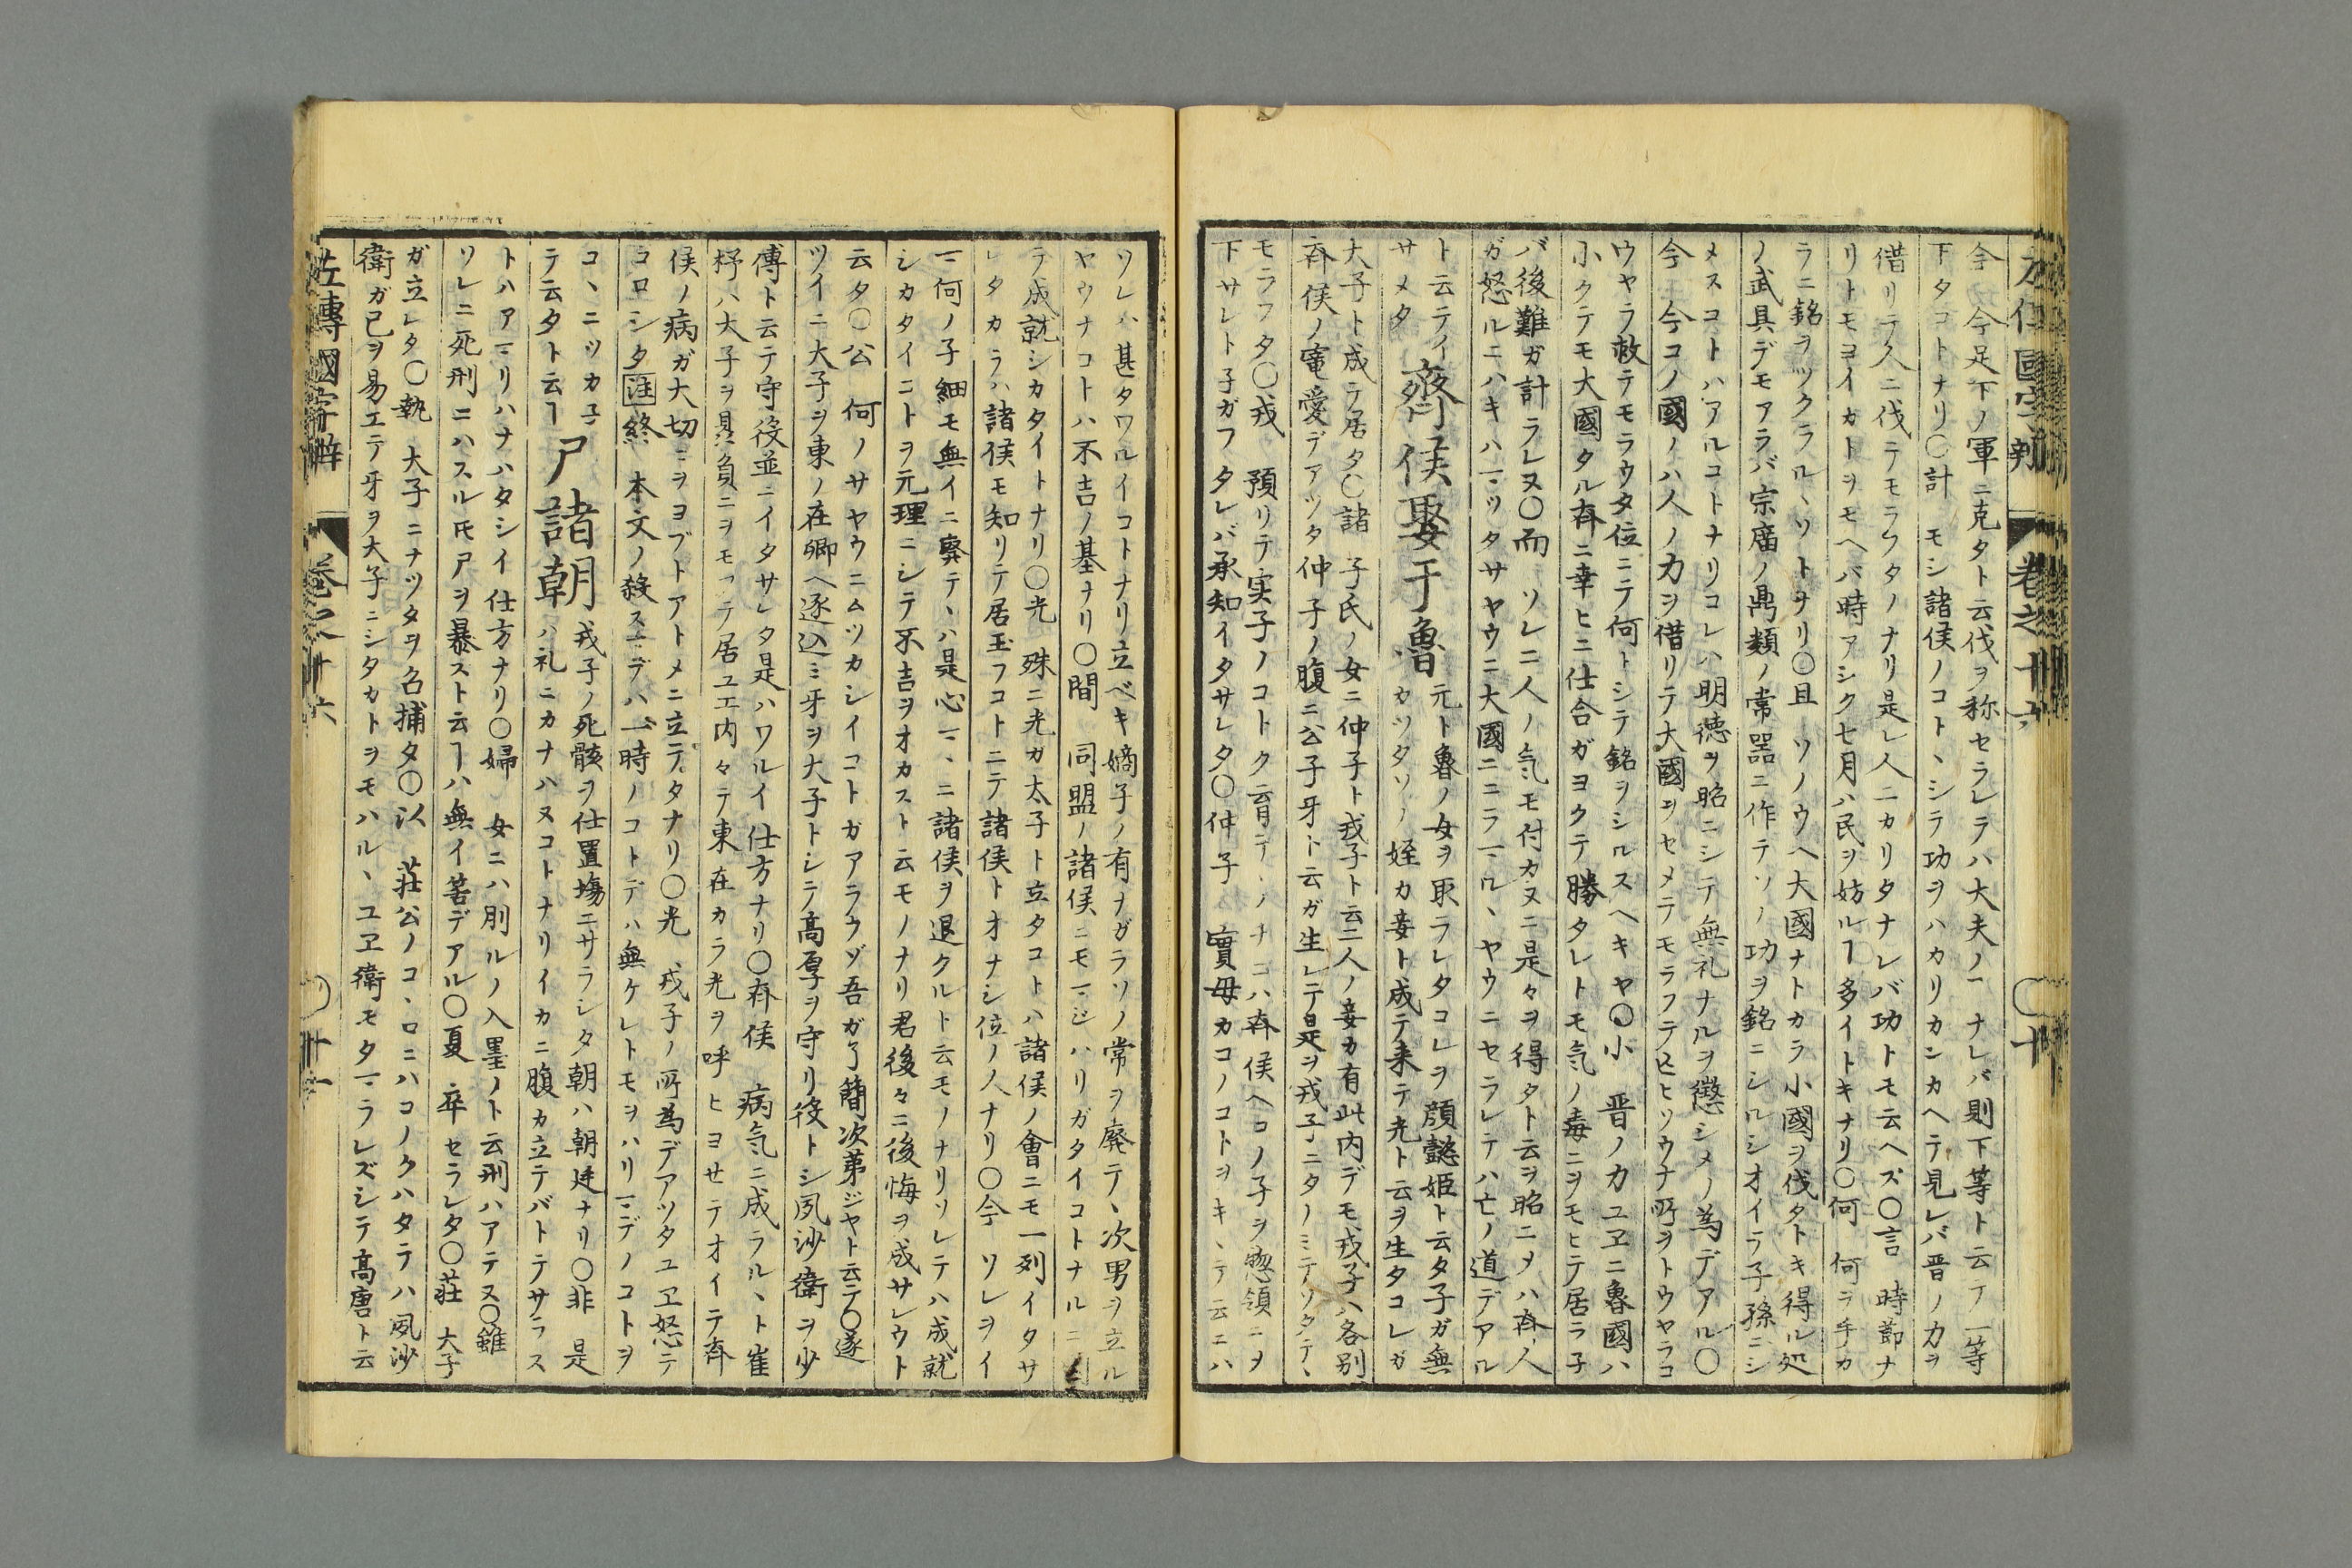 左傳國字辯 卷之十六 〇十
今 今足下ノ軍ニ克タト云伐ヲ称セラレヲハ大夫ノ一ナレバ則下等ト云ア一等
下タコトナリ〇計 モシ諸侯ノコトヽシラ功ヲハカリカンカヘテ見レバ晋ノ力ヲ
借リテ人ニ伐テモラフタノナリ是レ人ニカリタナレバ功トモ云ヘズ〇言 時節ナ
リトモヨイカトヲモヘバ時アシク七月ハ民ヲ妨ルヿ多イトキナリ〇何 何ヲ手カ
ラニ銘ヲツクラルヽソトナリ〇且 ソノウヘ大國ナトカラ小國ヲ伐タトキ得ル処
ノ武具デモアラバ宗廟ノ鼎類ノ常器ニ作テソノ功ヲ銘ニシルシオイラ子孫ニシ
メスコトハアルコトナリコレハ明徳ヲ昭ニシテ無礼ナルヲ懲シメノ為デアル〇
今 今コノ國ノハ人ノ力ヲ借リテ大國ヲセメテモラフテヒソウナ所ヲトウヤラコ
ウヤラ救テモラウタ位ニテ何トシテ銘ヲシルスヘキヤ〇小 晋ノカユヱニ魯國ハ
小クテモ大國タル斉ニ幸ヒニ仕合ガヨクテ勝タレトモ気ノ毒ニヲモヒテ居ラ子
バ後難ガ計ラレヌ〇而 ソレニ人ノ気モ付カヌニ是々ヲ得タト云ヲ昭ニメハ斉ノ人
ガ怒ルニハキハマツタサヤウニ大國ニニラマルヽヤウニセラレテハ亡ノ道デアル
ト云テイ 齊侯娶于魯 元ト魯ノ女ヲ取ラレタコレヲ顔懿姫ト云タ子ガ無
サメタ カツタソノ姪カ妾ト成テ来テ光ト云ヲ生タコレガ
大子ト成テ居タ〇諸 子氏ノ女ニ仲子ト戎子ト云二人ノ妾カ有此内デモ戎子ハ各別
斉侯ノ寵愛デアツタ仲子ノ腹ニ公子牙ト云ガ生レテ是ヲ戎子ニタノミテソタテヽ
モラフタ〇戎 預リテ実子ノコトク育テヽノナニハ斉侯ヘコノ子ヲ惣領ニヲ
下サレト子ガフタレバ承知イタサレタ〇仲子 實母カコノコトヲキヽテ云ニハ
ソレハ甚タワルイコトナリ立ベキ嫡子ノ有ナガラソノ常ヲ廃テヽ次男ヲ立ル
ヤウナコトハ不吉ノ基ナリ〇間 同盟ノ諸侯ニモマジハリガタイコトナルニ
ラ成就シカタイトナリ〇光 殊ニ光ガ太子ト立タコトハ諸侯ノ會ニモ一列イタサ
レタカラハ諸侯モ知リテ居玉フコトニテ諸侯トオナシ位ノ人ナリ〇今 ソレヲイ
マ何ノ子細モ無イニ棄テヽハ是心マヽニ諸侯ヲ退クルト云モノナリソレテハ成就
シカタイニトヲ元理ニシテ不吉ヲオカスト云モノナリ君後々ニ後悔ヲ成サレウト
云タ〇公 何ノサヤウニムツカシイコトガアラウゾ吾ガ了簡次第ジヤト云テ〇遂
ツイニ大子ヲ東ノ在郷ヘ逐込ミ牙ヲ大子トシテ髙厚ヲ守リ役トシ夙沙衛ヲ少
傅ト云テ守役並ニイタサレタ是ハワルイ仕方ナリ〇斉侯 病気ニ成ラルヽト崔
杼ハ大子ヲ見負ニヲモッテ居ユエ内々テ東在カラ光ヲ呼ヒヨせテオイテ斉
侯ノ病ガ大切ニヲヨブトアトメニ立テタナリ〇光 戎子ノ所為デアツタユヱ怒テ
コロシタ注終 本文ノ殺スマデハ一時ノコトデハ無ケレトモヲハリマデノコトヲ
コヽニツカ子 尸諸朝 戎子ノ死骸ヲ仕置塲ニサラシタ朝ハ朝廷ナリ〇非 是
テ云タト云ヿ ハ礼ニカナハヌコトナリイカニ腹カ立テバトテサラス
トハアマリハナハタシイ仕方ナリ〇婦 女ニハ刖ルノ入墨ノト云刑ハアテヌ〇雖
ソレニ死刑ニハスル𪜈尸ヲ暴スト云ヿハ無イ筈デアル〇夏 卒セラレタ〇莊 大子
ガ立レタ〇執 大子ニナツタヲ名捕タ〇以 莊公ノコヽロニハコノクハタテハ夙沙
衛ガ已ヲ易エテ牙ヲ大子ニシタカトヲモハルヽユヱ衛モタマラレズシテ髙唐ト云
左傳國字辯 卷之十六 〇十一